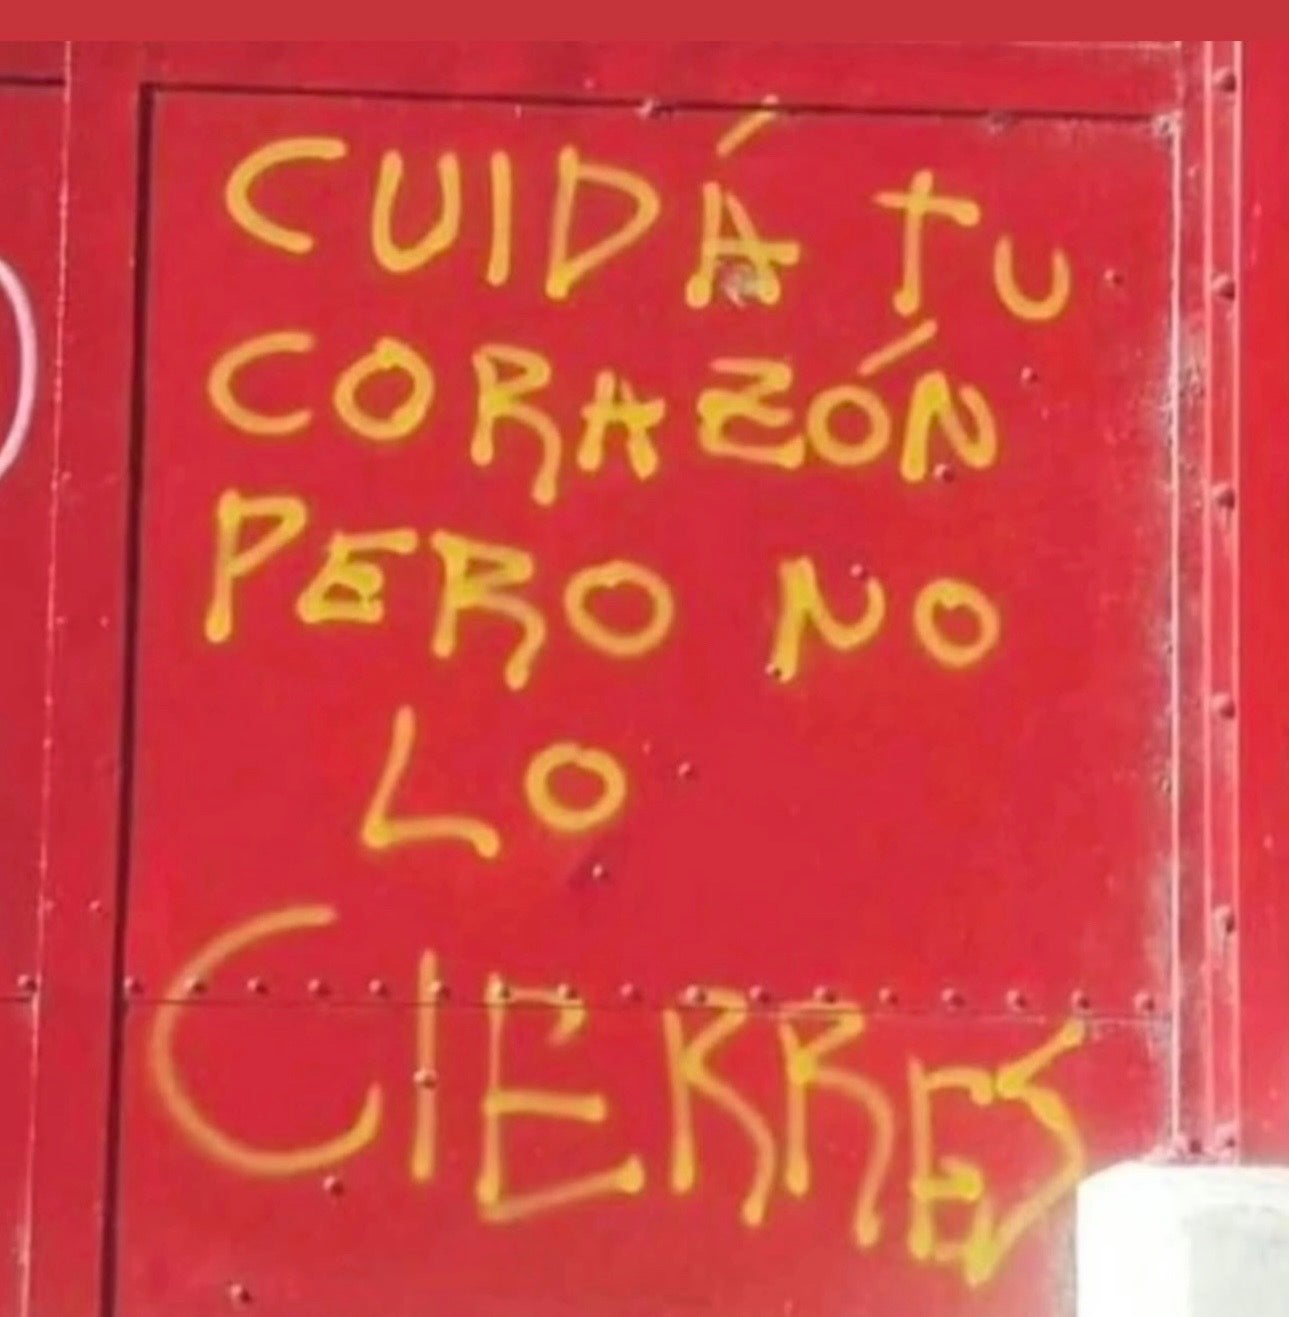 CUIDÁ TU
CORAZÓN
PERO NO
LO
CIERRES